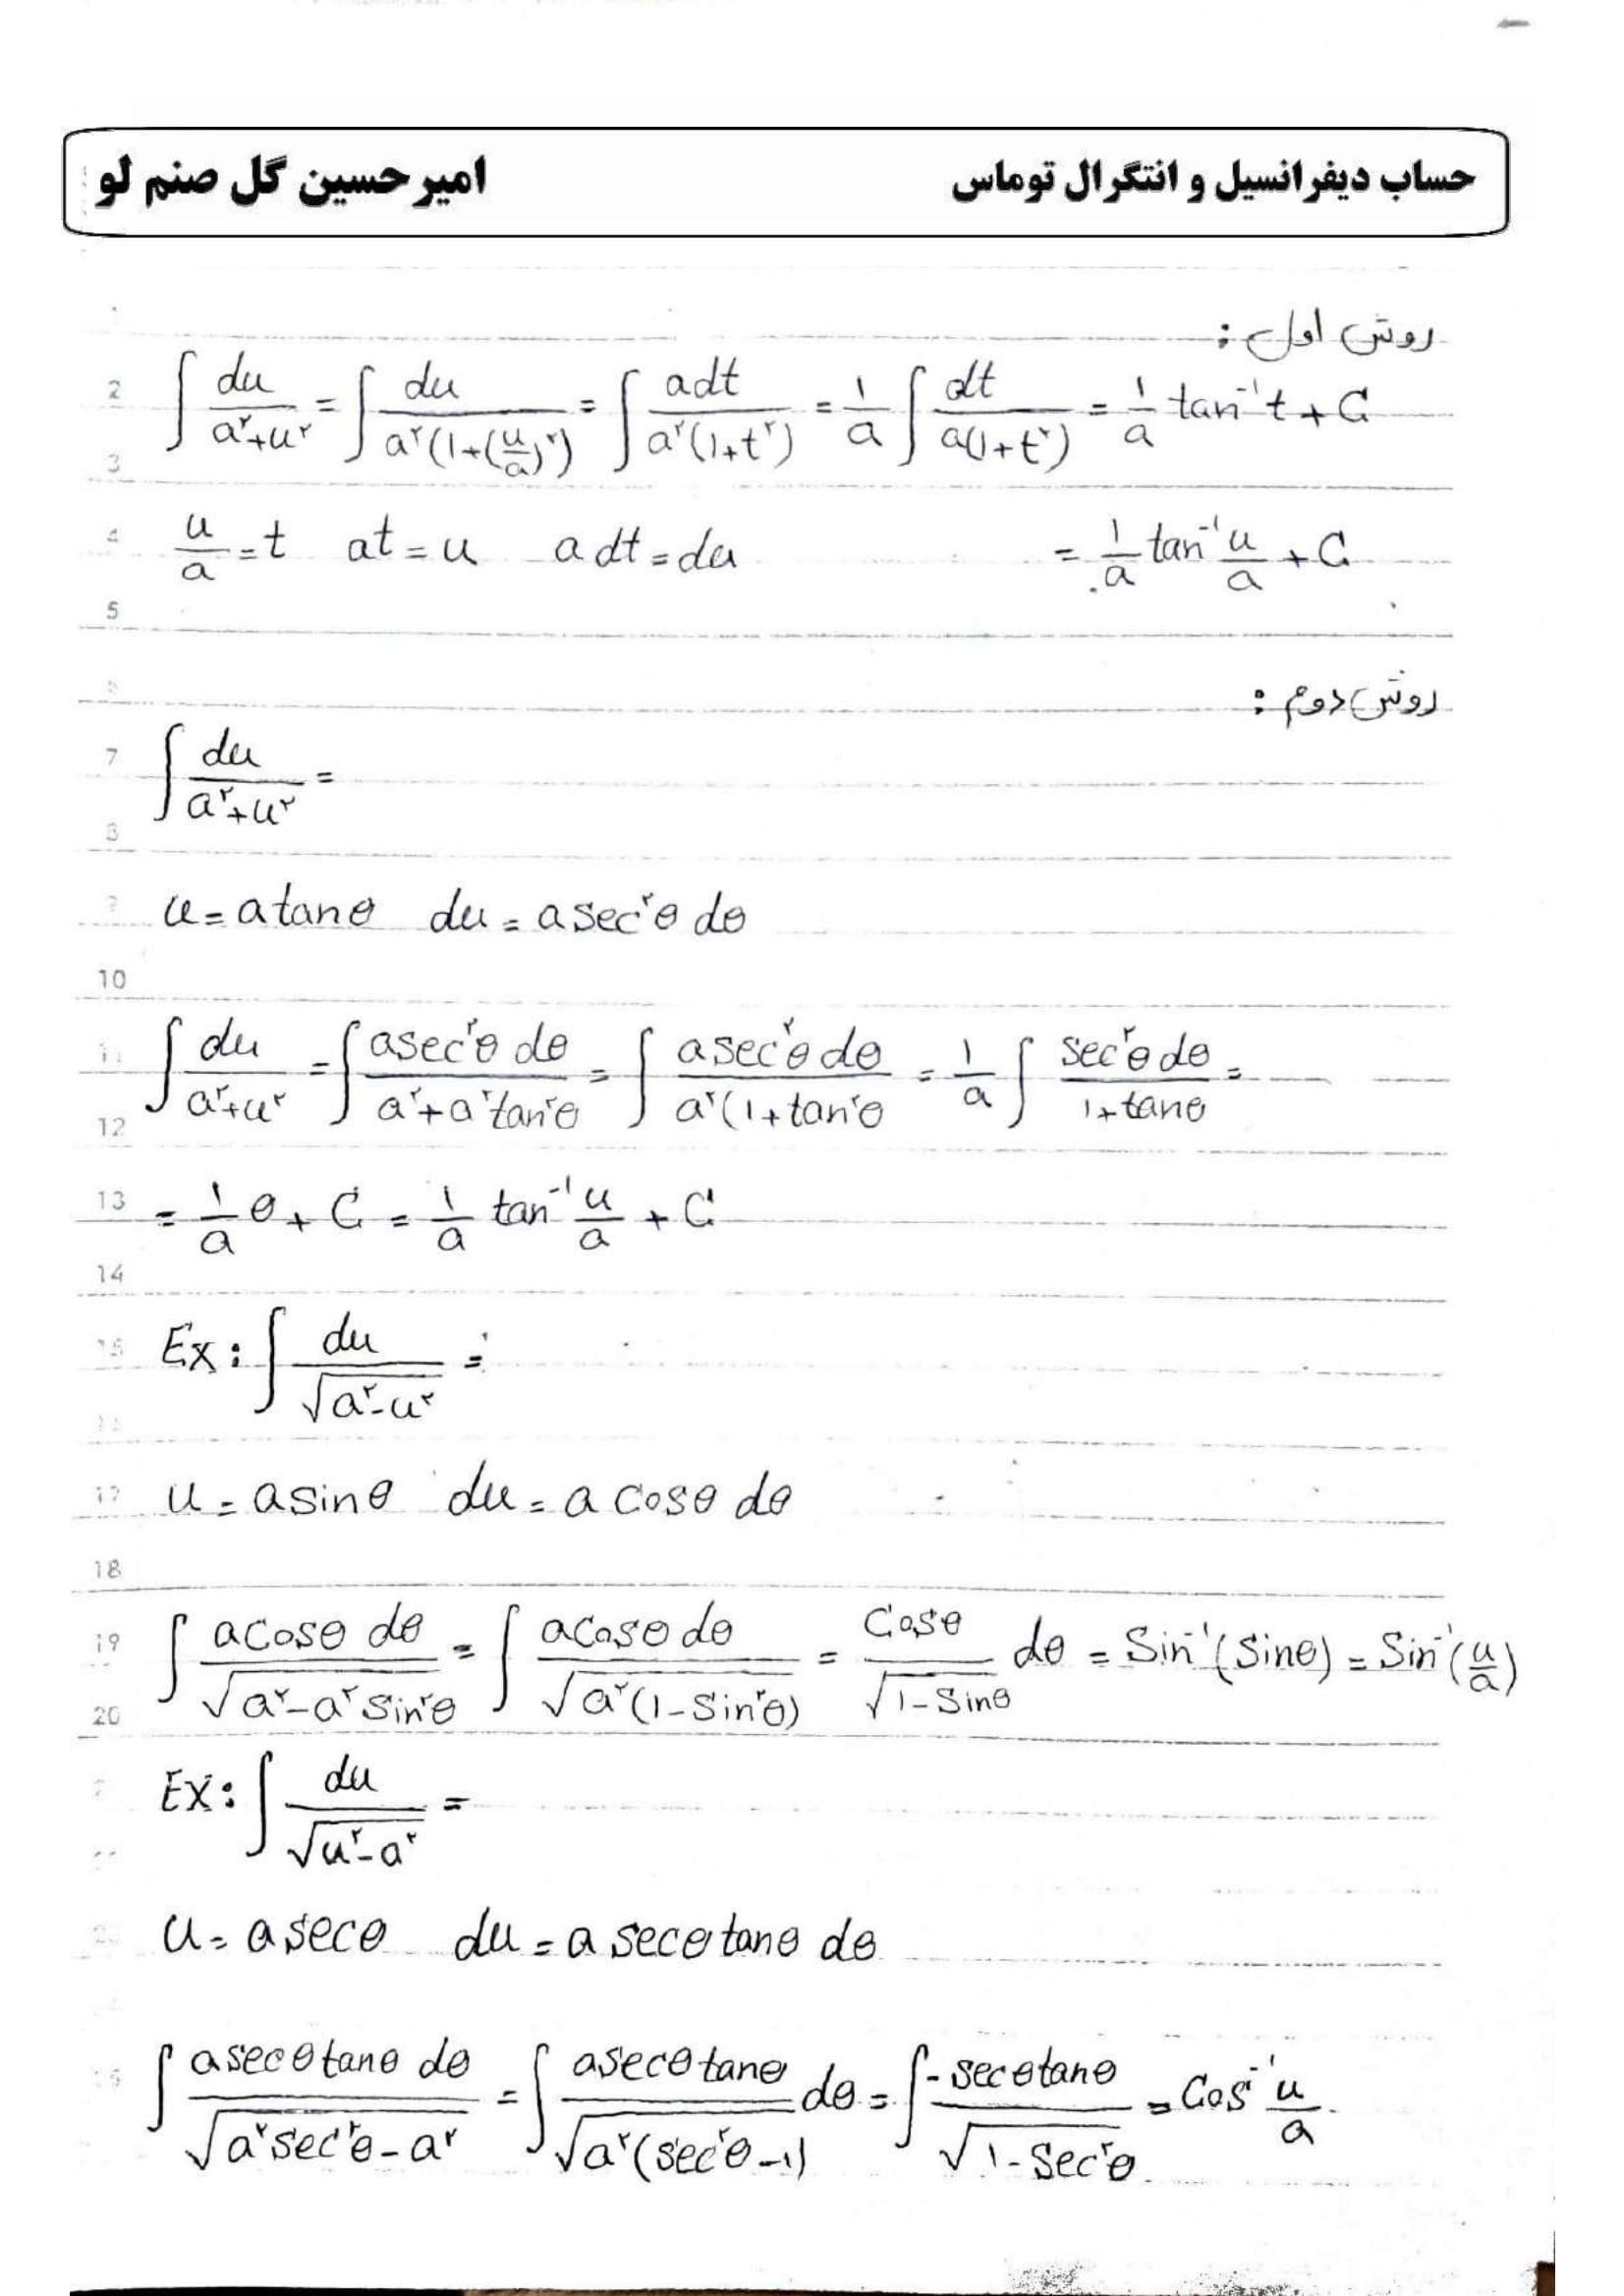 حساب دیفرانسیل و انتگرال توماس امیرحسین گل صنم لو
روش اول :
2 ∫ du/(a²+u²) = ∫ du/(a²(1+(u/a)²)) = ∫ adt/(a²(1+t²)) = 1/a ∫ dt/(a(1+t²)) = 1/a tan⁻¹t + C
3
4 u/a = t at = u a dt = du = 1/a tan⁻¹ u/a + C
5
روش دوم :
7 ∫ du/(a²+u²) =
8
9 u = a tanθ du = a sec²θ dθ
10
11 ∫ du/(a²+u²) = ∫ a sec²θ dθ/(a²+a²tan²θ) = ∫ a sec²θ dθ/(a²(1+tan²θ = 1/a ∫ sec²θ dθ/(1+tanθ) =
12
13 = 1/a θ + C = 1/a tan⁻¹ u/a + C
14
15 Ex: ∫ du/√(a²-u²) =
17 u = a sinθ du = a cosθ dθ
18
19 ∫ a cosθ dθ/√(a²-a² sin²θ) = ∫ a cosθ dθ/√(a²(1-sin²θ)) = cosθ/√(1-sinθ) dθ = Sin⁻¹(sinθ) = Sin⁻¹(u/a)
20
Ex: ∫ du/√(u²-a²) =
u = a secθ du = a secθ tanθ dθ
∫ a secθ tanθ dθ/√(a² sec²θ - a²) = ∫ a secθ tanθ/√(a²(sec²θ-1)) dθ = ∫ -secθ tanθ/√(1-Sec²θ) = Cos⁻¹ u/a